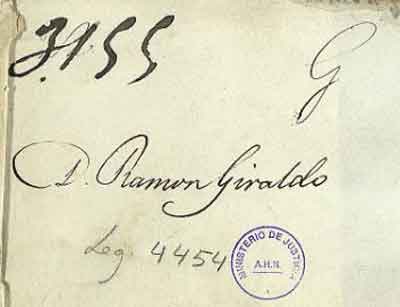 3155
G
D. Ramon Giraldo
Leg. 4454
MINISTERIO DE JUSTICIA
A.H.N.